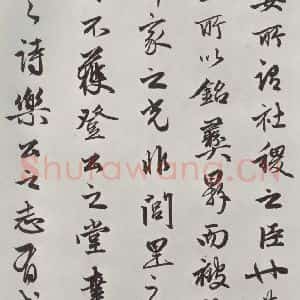 安所詔社稷之臣
所以銘彝鼎而被
家之光非閭里之
不獲登公之堂幸
詩樂公之志有
Shufawang.CN